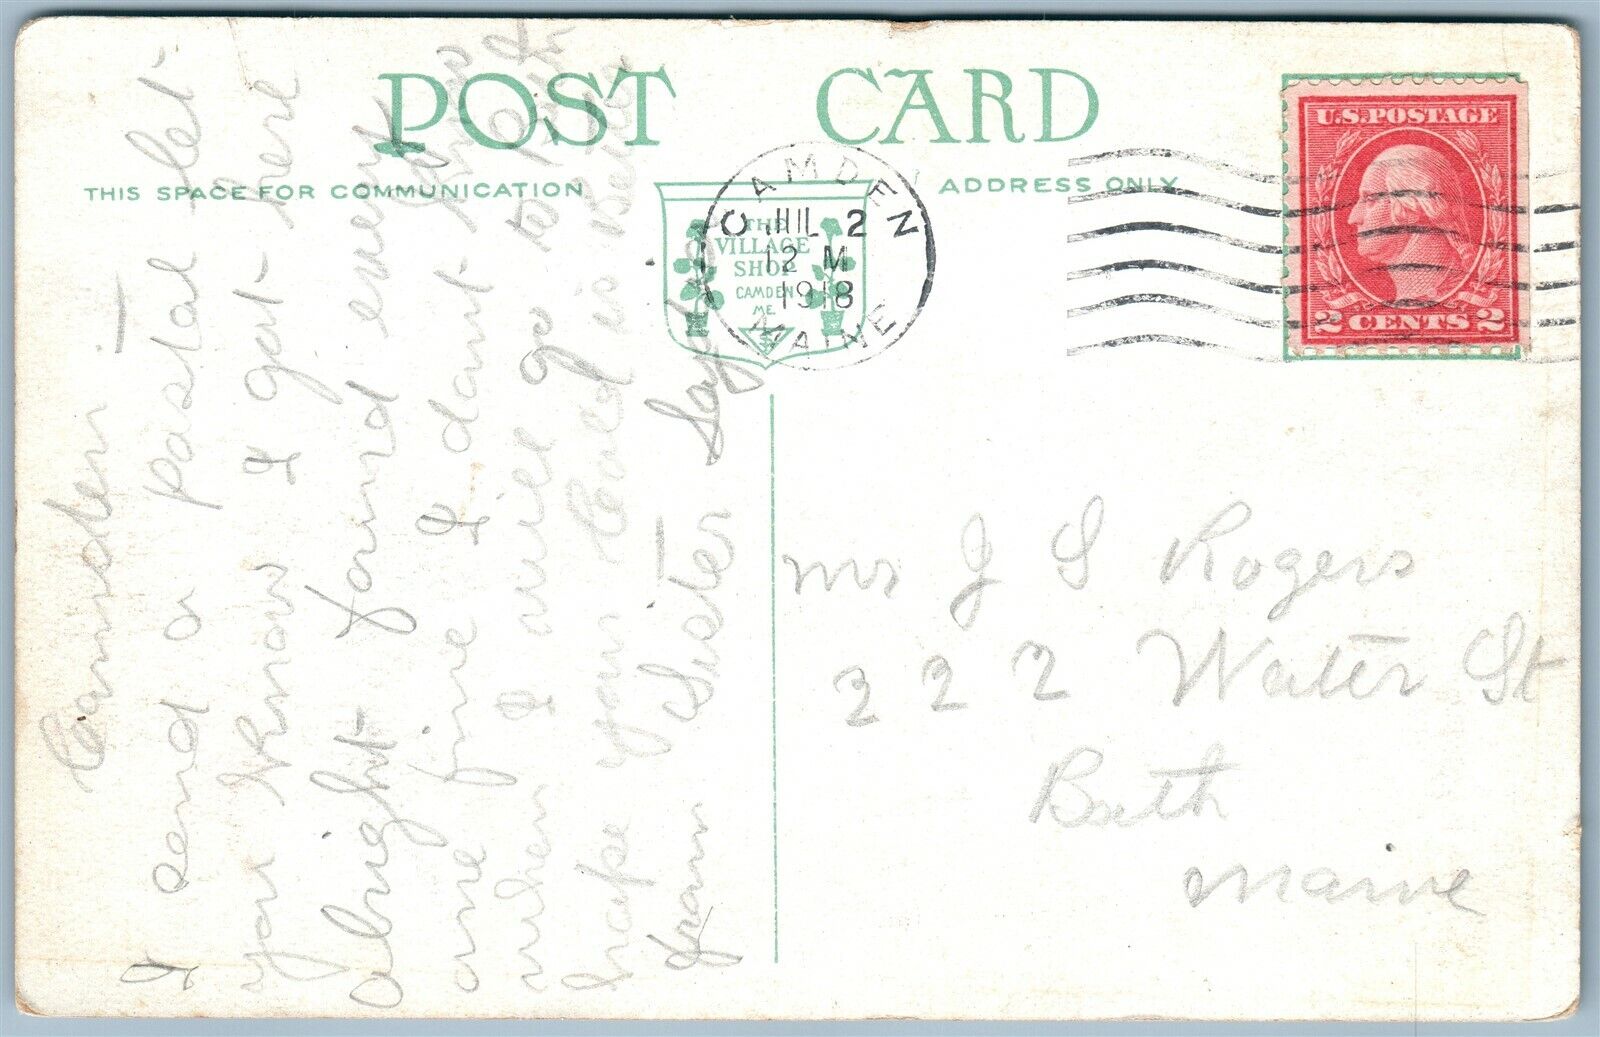 POST CARD
THIS SPACE FOR COMMUNICATION
ADDRESS ONLY
THE
VILLAGE
SHOP
CAMDEN
ME.
CAMDEN
JUL 2
12 M
1918
MAINE
U.S. POSTAGE
2 CENTS 2
Camden
I send a pastal let
you know I got here
alright found every
one fine I dant know
when I will go to
hope your Cold is Better
fram Sister
Mr J S Rogers
222 Water St
Bath
Maine